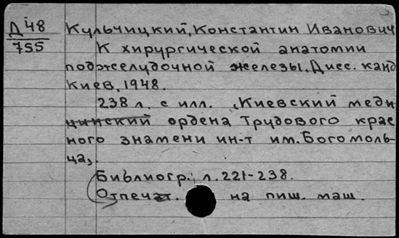 Д 48
755
Кульчицкий, Константин Иванович
К хирургической анатомии
поджелудочной железы. Дисс. канд
Киев, 1948.
238 л. с илл. (Киевский меди
цинский ордена Трудового крас
ного знамени ин-т им. Богомоль-
ца).
Библиогр.: л. 221-238.
Отпечат. на пиш. маш.